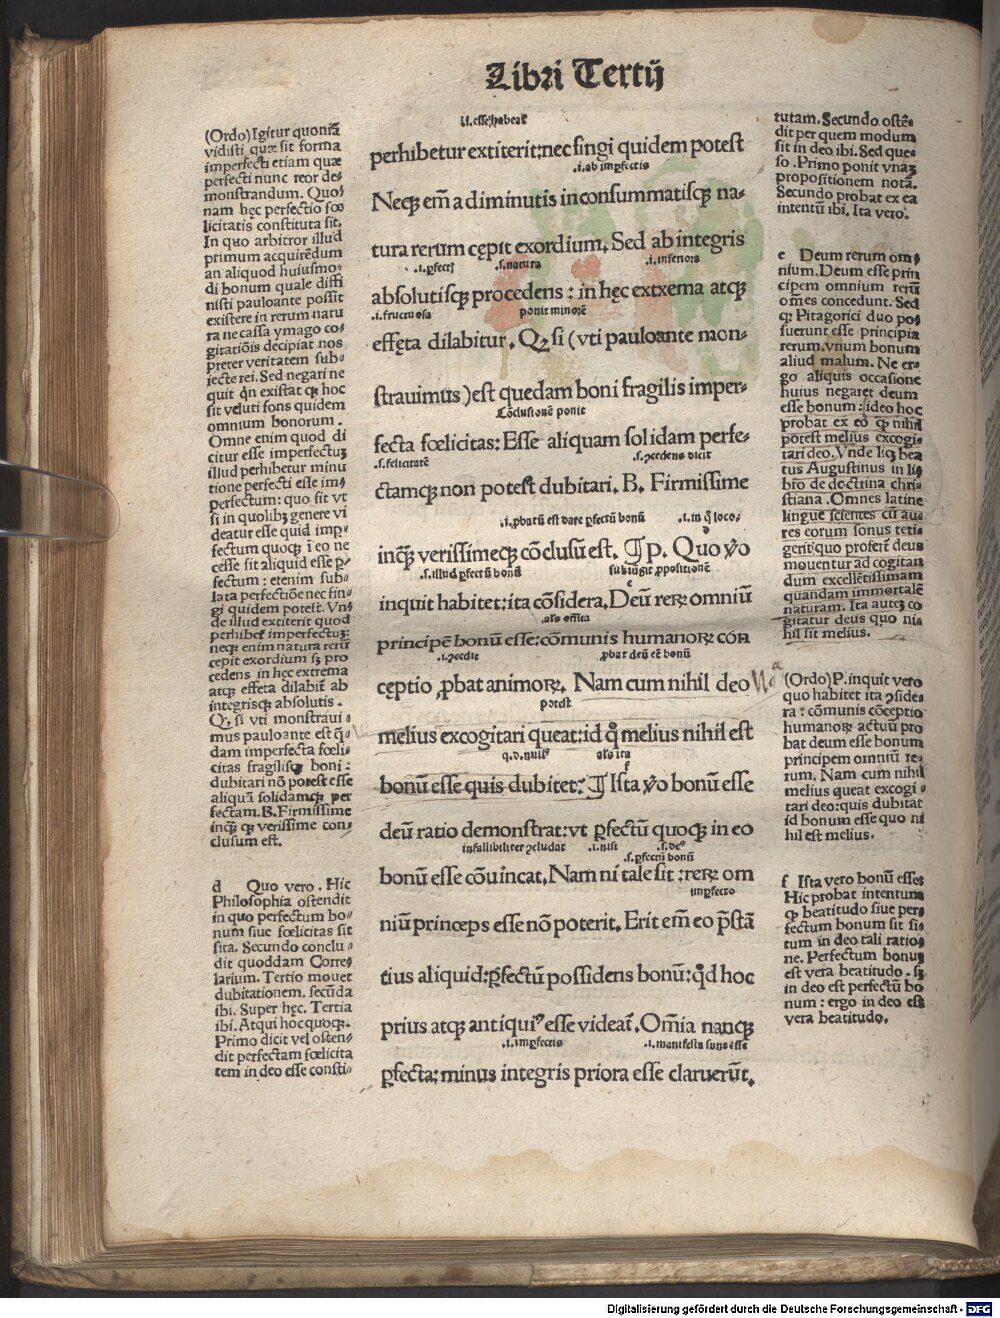 Libri Tertij
(Ordo) Igitur quoniã
vidisti quæ sit forma
imperfecti etiam quæ
perfecti nunc reor de⸗
monstrandum. Quo⸗
nam hęc perfectio fœ
licitatis constituta sit.
In quo arbitror illud
primum acquirēdum
an aliquod huiusmo⸗
di bonum quale diffi
nisti pauloante possit
existere in rerum natu
ra ne cassa ymago co⸗
gitatiōis decipiat nos
preter veritatem sub⸗
iecte rei. Sed negari ne
quit qn existat qꝫ hoc
sit veluti fons quidem
omnium bonorum.
Omne enim quod di
citur esse imperfectuꝫ
illud perhibetur minu
tione perfecti esse im⸗
perfectum: quo fit vt
si in quolibꝫ genere vi
deatur esse quid imp⸗
fectum quoqꝫ ī eo ne
cesse sit aliquid esse ꝑ⸗
fectum: etenim sub⸗
lata perfectiōe nec fin⸗
gi quidem potest. Vn⸗
de illud extiterit quod
perhibeꝭ imperfectuꝫ:
neqꝫ enim natura rerū
cepit exordium sꝫ pro
cedens in hęc extrema
atqꝫ effeta dilabiť ab
integrisqꝫ absolutis.
Qꝫ si vti monstraui⸗
mus pauloante est q̄⸗
dam imperfecta fœli⸗
citas fragilisqꝫ boni:
dubitari nō potest esse
aliquā solidamqꝫ per
fectam. B. Firmissime
inqꝫ qꝫ verissime con⸗
clusum est.
d Quo vero. Hic
Philosophia ostendit
in quo perfectum bo⸗
num siue fœlicitas sit
sita. Secundo conclu⸗
dit quoddam Corre⸗
larium. Tertio mouet
dubitationem. secūda
ibi. Super hęc. Tertia
ibi. Atqui hoc quoqꝫ.
Primo dicit vel osten⸗
dit perfectam fœlicita
tem in deo esse consti⸗
.i. esse habeaꝭ
perhibetur extiterit: nec fingi quidem potest
.i. ab imꝑfectis
Neqꝫ em̄ a diminutis inconsummatisqꝫ na⸗
tura rerum cępit exordium. Sed ab integris
.i. ꝑfectꝭ .s. natura .i. inferiora
absolutisqꝫ procedens: in hęc extrema atqꝫ
.i. fructuosa ponit minorē
effęta dilabitur. Qꝫ si (vti pauloante mon⸗
strauimus) est quedam boni fragilis imper⸗
Cōclusionē ponit
fecta fœlicitas: Esse aliquam solidam perfe⸗
.s. felicitatē .s. ꝓcedens dicit
ctamqꝫ non potest dubitari. B. Firmissime
.i. ꝓbatū est dare ꝑfectū bonū .i. in q̄ loco
inqꝫ verissimeqꝫ cōclusū est. ¶ P. Quo v̊o
.s. illud ꝑfectū bonū subiūgit ꝓpositionē
inquit habitet: ita cōsidera. Deū reꝝ omniū
principē bonū esse: cōmunis humanoꝝ con
.i. ꝓcedit ꝓbat deū eē bonū
cęptio ꝓbat animoꝝ. Nam cum nihil deo
potest
melius excogitari queat: id q̊ melius nihil est
q. d. nullꝰ alʼs ita
bonū esse quis dubitet: ¶ Ista v̊o bonū esse
deū ratio demonstrat: vt ꝑfectū quoqꝫ in eo
infallibiliter ꝯcludat .i. nisi .s. deꝰ
.s. ꝑfectū bonū
bonū esse cōuincat. Nam ni tale sit: reꝝ om
imꝑfecto
niū princeps esse nō poterit. Erit em̄ eo p̄stā
tius aliquid: ꝑfectū possidens bonū: qd̄ hoc
prius atqꝫ antiquiꝰ esse videať. Om̄ia nanqꝫ
.i. imꝑfectis .i. manifesta sunt esse
ꝑfecta: minus integris priora esse claruerūt.
tutam. Secundo ostē⸗
dit per quem modum
sit in deo ibi. Sed que⸗
so. Primo ponit vnaꝫ
propositionem notā.
Secundo probat ex ea
intentū ibi. Ita vero.
e Deum rerum om⸗
nium. Deum esse prin
cipem omnium rerū
oēs concedunt. Sed
qꝫ Pitagorici duo po⸗
suerunt esse principia
rerum. vnum bonum
aliud malum. Ne er⸗
go aliquis occasione
huius negaret deum
esse bonum: ideo hoc
probat ex eo qꝫ nihil
potest melius excogi⸗
tari deo. Vnde licꝫ bea
tus Augustinus in li⸗
bro de doctrina chri⸗
stiana. Omnes latine
lingue scientes cū au⸗
res eorum sonus teti⸗
gerit quo proferť deus
mouentur ad cogitan
dum excellētissimam
quandam immortalē
naturam. Ita auteꝫ co
gitatur deus quo ni⸗
hil sit melius.
(Ordo) P. inquit vero
quo habitet ita ꝯside⸗
ra: cōmunis cōceptio
humanoꝝ actuū pro
bat deum esse bonum
principem omniū re⸗
rum. Nam cum nihil
melius queat excogi⸗
tari deo: quis dubitat
id bonum esse quo ni
hil est melius.
f Ista vero bonū esse
Hic probat intentum
qꝫ beatitudo siue per⸗
fectum bonum sit si⸗
tum in deo tali ratio⸗
ne. Perfectum bonum
est vera beatitudo. sꝫ
in deo est perfectū bo
num: ergo in deo est
vera beatitudo.
Digitalisierung gefördert durch die Deutsche Forschungsgemeinschaft - DFG